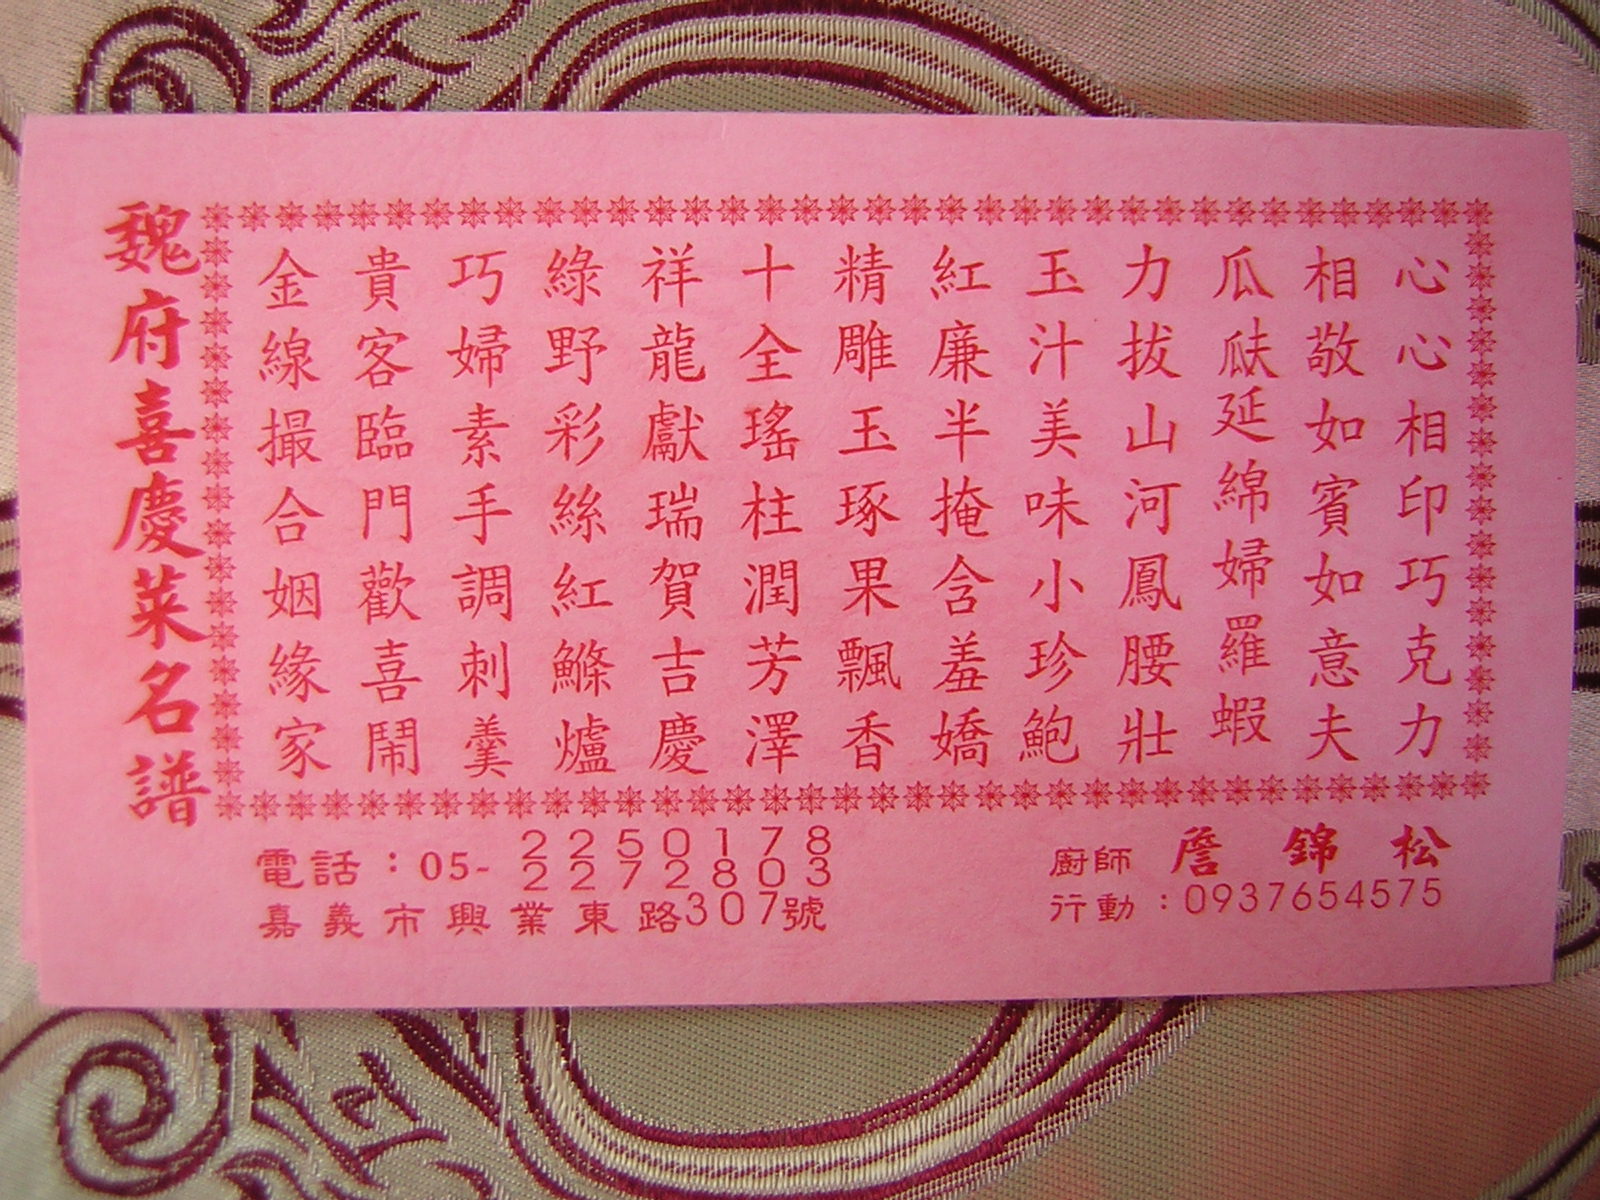 魏府喜慶菜名譜
金線撮合姻緣家
貴客臨門歡喜鬧
巧婦素手調刺羹
綠野彩絲紅鰷爐
祥龍獻瑞賀吉慶
十全瑤柱潤芳澤
精雕玉琢果飄香
紅廉半掩含羞嬌
玉汁美味小珍鮑
力拔山河鳳腰壯
瓜瓞延綿婦羅蝦
相敬如賓如意夫
心心相印巧克力
電話：05-2250178
2272803
嘉義市興業東路307號
廚師 詹錦松
行動：0937654575